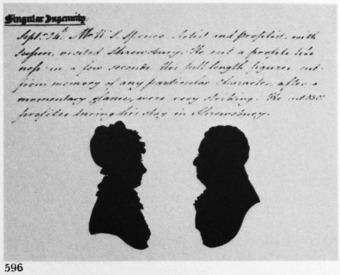 Singular Ingenuity
Sept. 24th. Mr. W. S. Spence. Artist and Profilist, with
visited Shrewsbury. He cut a profile like
ness in a few seconds. His full length figures cut
from memory of any particular character, after a
momentary glance, were very striking. He cut
profiles during his stay in Shrewsbury.
596